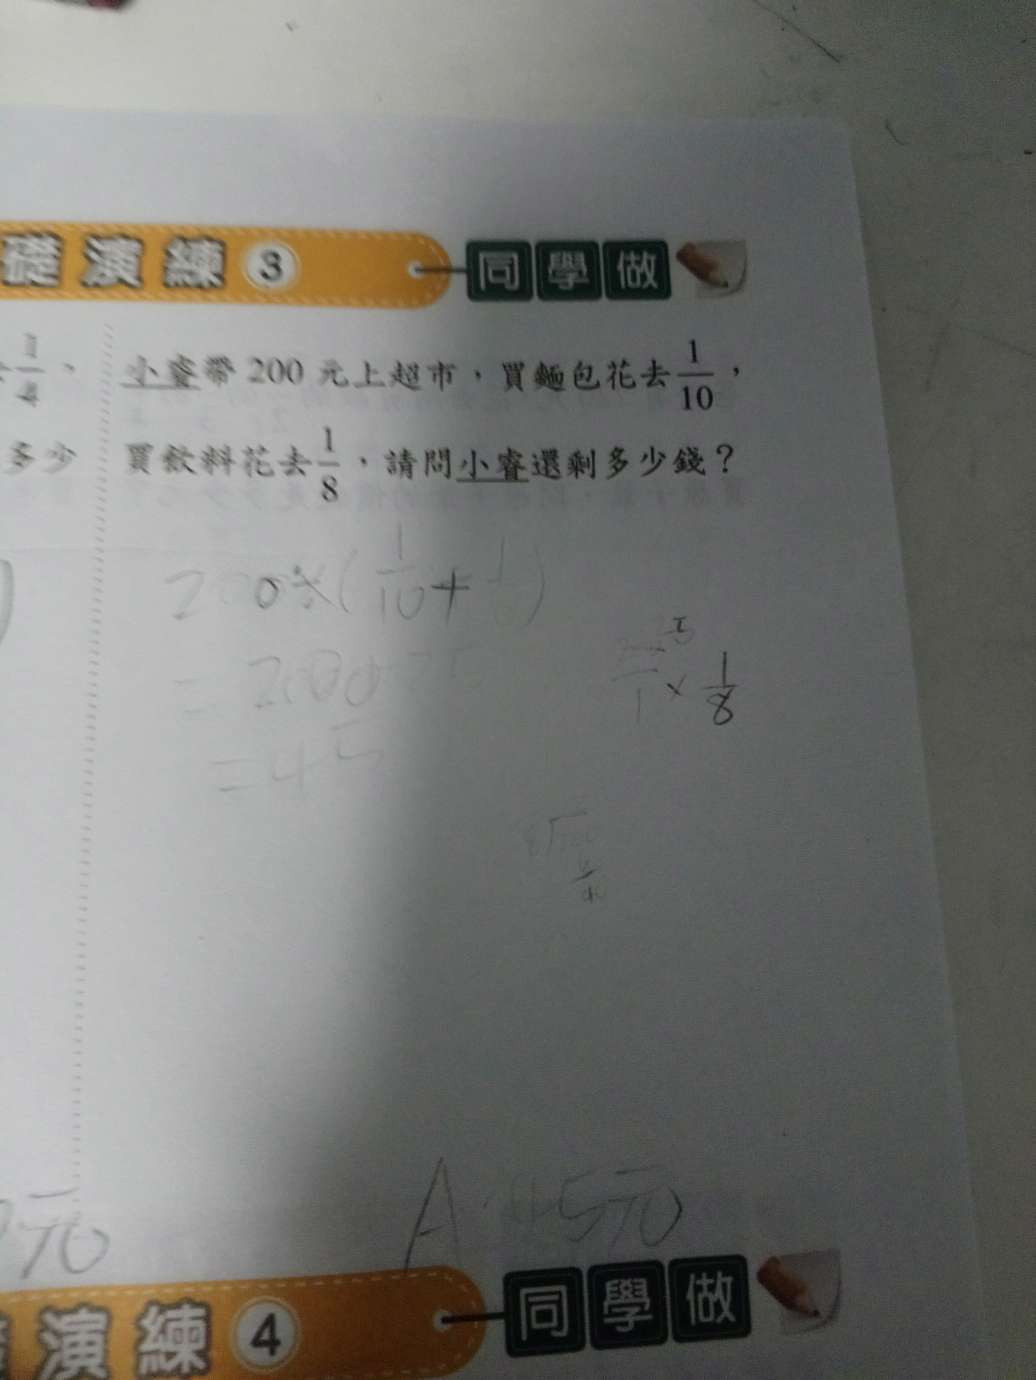 礎演練3 同學做
1/4、 小睿帶 200 元上超市，買麵包花去 1/10，
多少 買飲料花去 1/8，請問小睿還剩多少錢？
200×(1/10+
× 1/8
=200
=45
元 A 45元
演練4 同學做